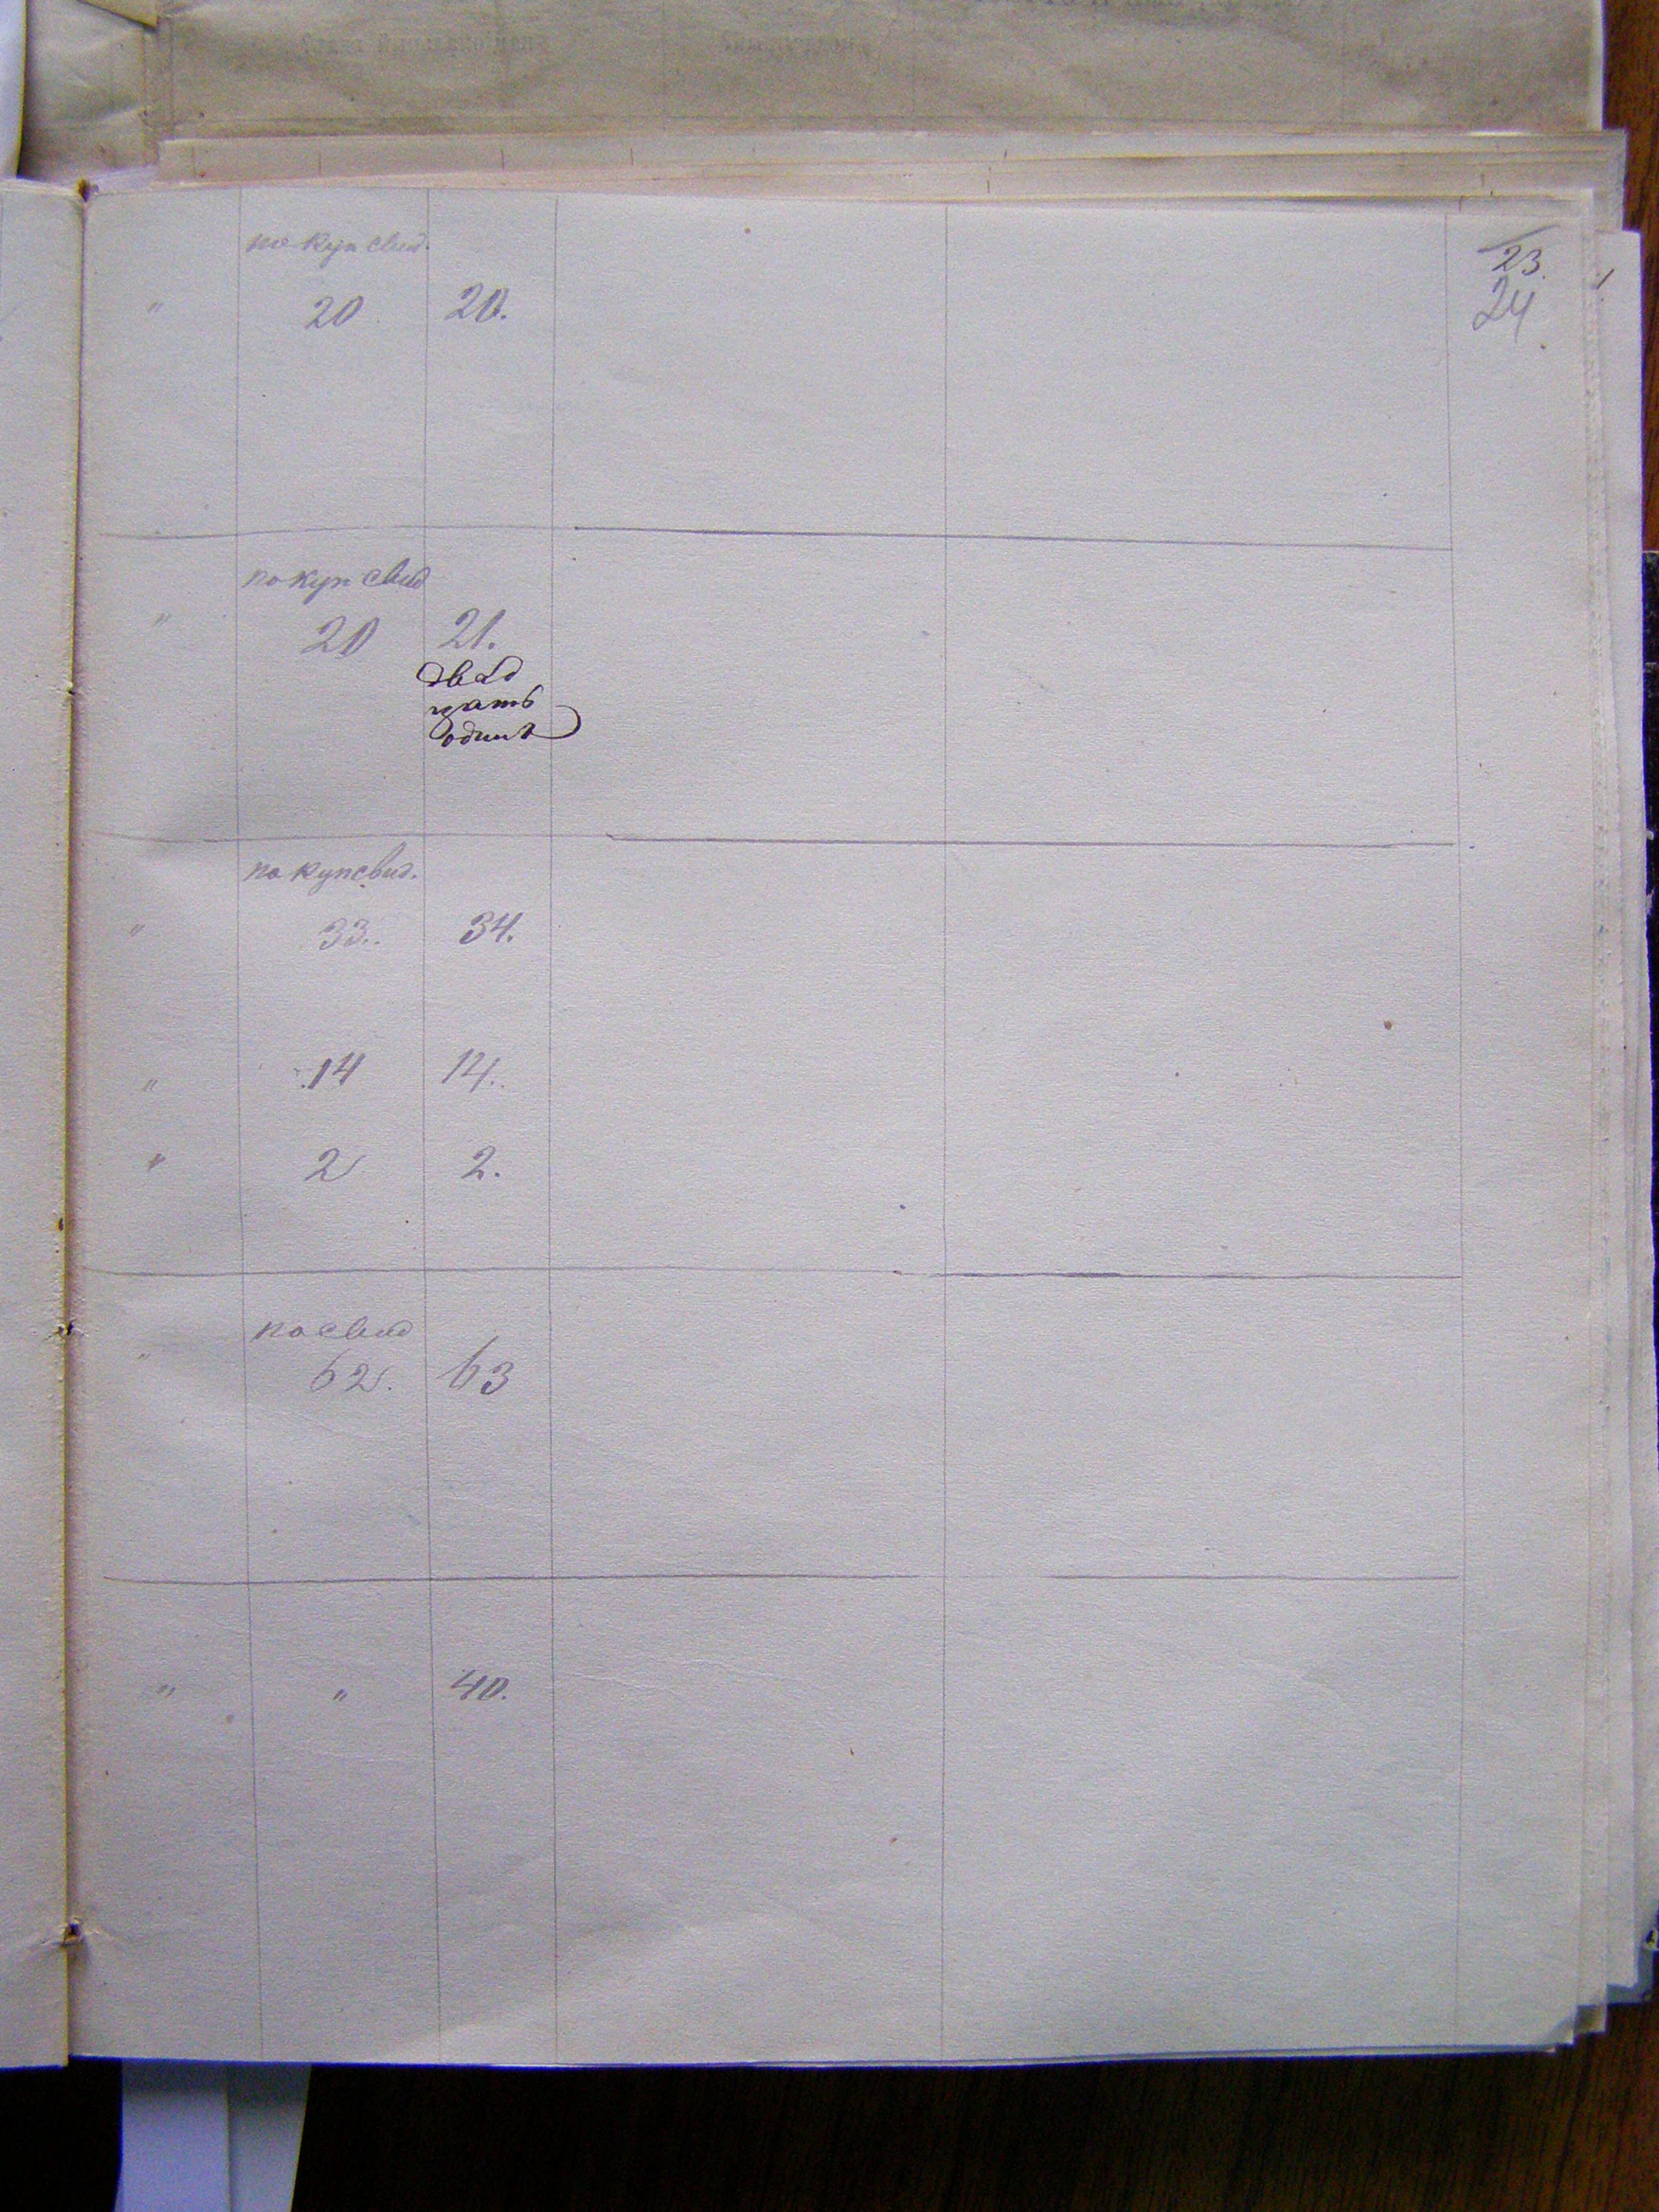 по куп свид.
23.
24
" 20 20.
по куп свид
" 20 21.
двад
цать
одинъ
по куп свид.
" 33. 34.
" 14 14.
" 2 2.
по свид
" 62. 63
" " 40.